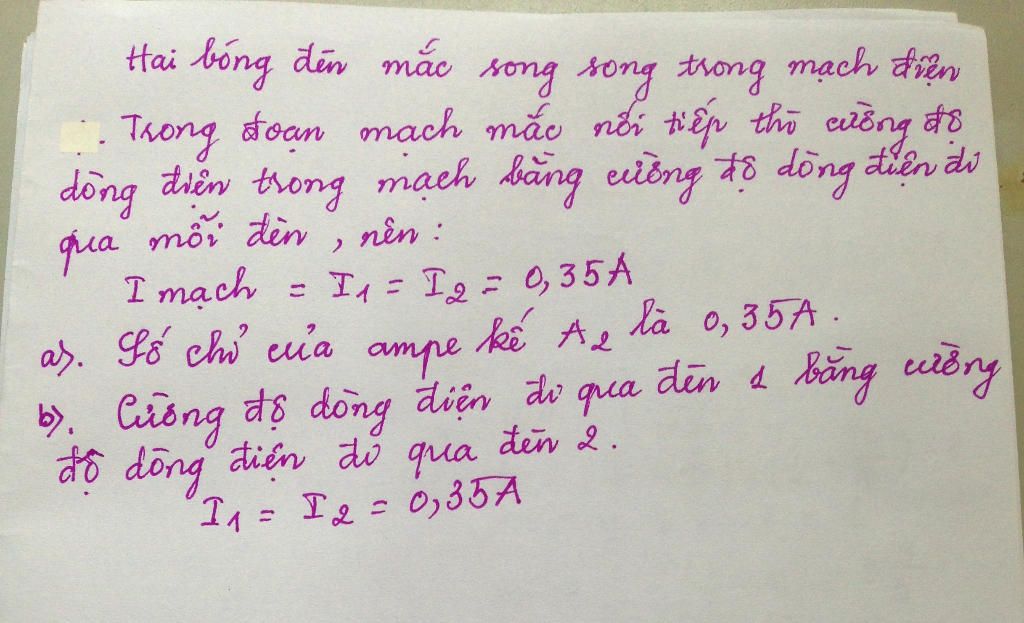 Hai bóng đèn mắc song song trong mạch điện
. Trong đoạn mạch mắc nối tiếp thì cường độ
dòng điện trong mạch bằng cường độ dòng điện đi
qua mỗi đèn, nên:
I mạch = I1 = I2 = 0,35A
a). Số chỉ của ampe kế A2 là 0,35A.
b). Cường độ dòng điện đi qua đèn 1 bằng cường
độ dòng điện đi qua đèn 2.
I1 = I2 = 0,35A